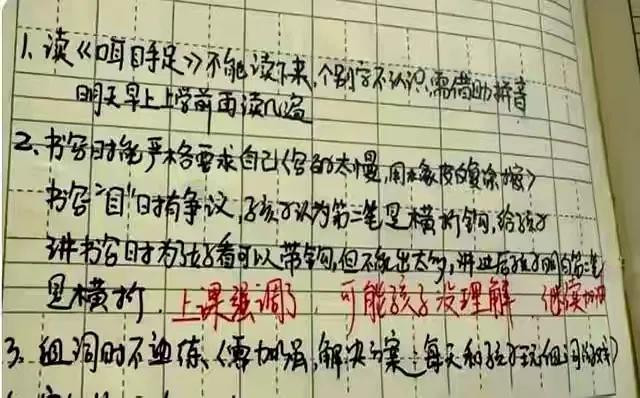 1、读《口耳目手足》不能读下来,个别字不认识,需借助拼音
明天早上上学前再读几遍
2、书写时能严格要求自己(写的太慢,用橡皮反复涂擦)
书写"目"时有争议,孩子认为第二笔是横折钩,给孩子
讲书写时为了好看可以带钩,但不能出太多,讲过后孩子明白第二笔
是横折. 上课强调了 可能孩子没理解 继续加强
3、组词时不熟练、(需加强,解决方案:每天和孩子玩组词游戏)